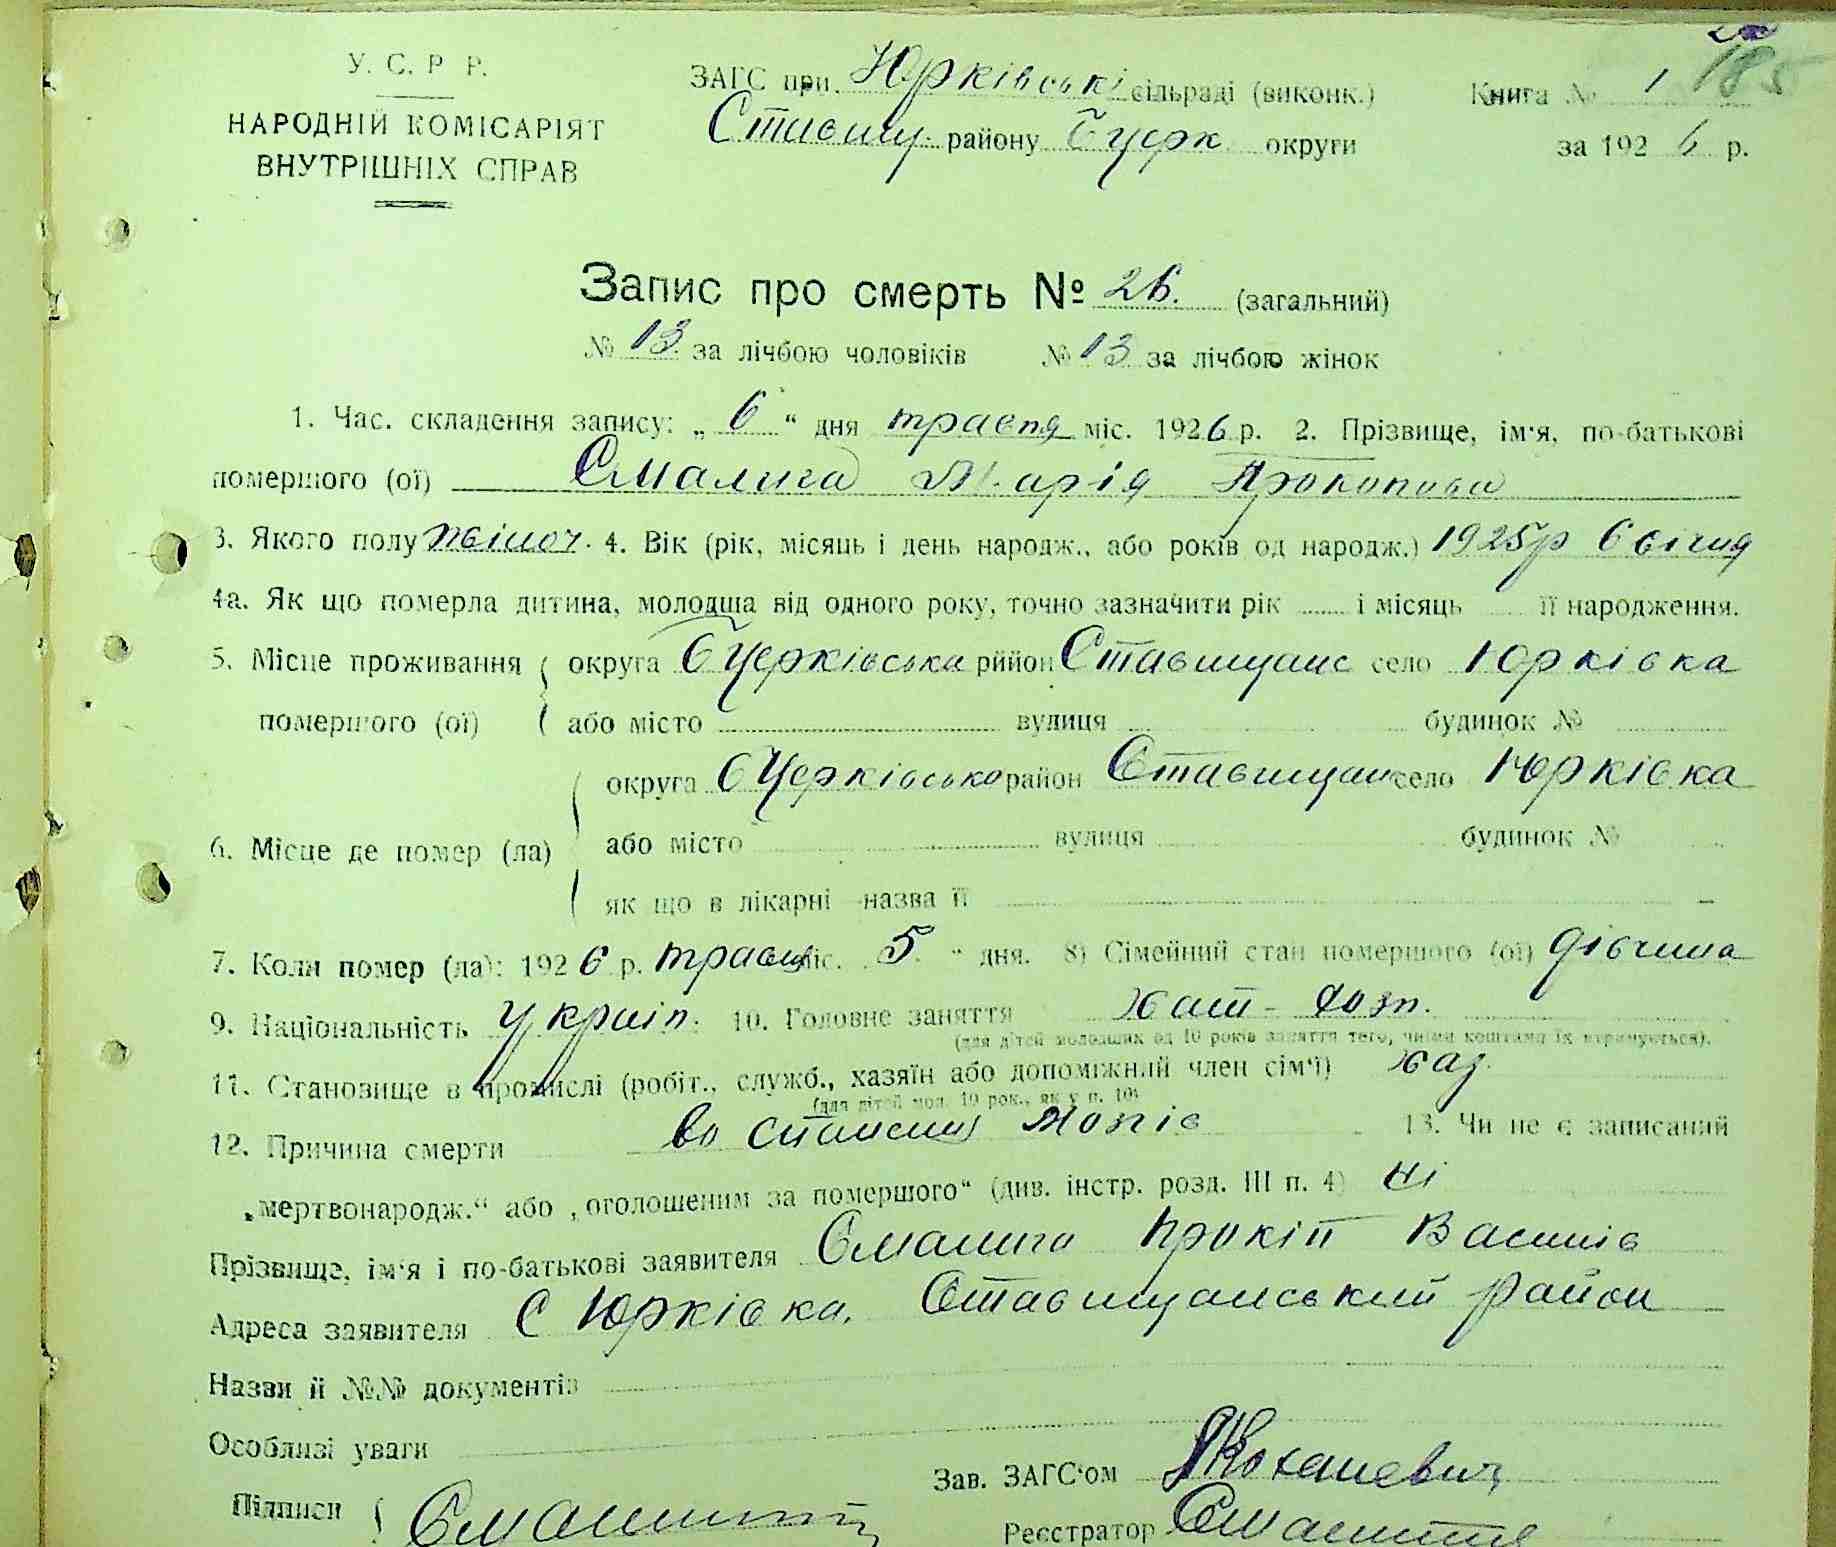 185
У. С. Р Р.
НАРОДНІЙ КОМІСАРІЯТ
ВНУТРІШНІХ СПРАВ
ЗАГС при Юрківські сільраді (виконк.)
Ставищ. району БЦерк округи
Книга № 1
за 1926 р.
Запис про смерть № 26. (загальний)
№ 13. за лічбою чоловіків № 13 за лічбою жінок
1. Час. складення запису: „ 6 “ дня травня міс. 1926 р. 2. Прізвище, ім'я, по-батькові
помершого (ої) Смалига Марія Прокопова
3. Якого полу жіноч. 4. Вік (рік, місяць і день народж., або років од народж.) 1925р 6 січня
4а. Як що померла дитина, молодша від одного року, точно зазначити рік і місяць її народження.
5. Місце проживання округа БЦерківська рййон Ставищанс село Юрківка
помершого (ої) або місто вулиця будинок №
округа БЦерківсько район Ставищан село Юрківка
6. Місце де помер (ла) або місто вулиця будинок №
як що в лікарні назва її
7. Коли помер (ла): 1926 р. травн міс. 5. “ дня. 8) Сімейний стан помершого (ої) дівчина
9. Національність україн. 10. Головне заняття
(для дітей молодших од 10 років заняття того, чиїми коштами їх втримується).
11. Становище в промислі (робіт., служб., хазяїн або допоміжний член сім'ї) хаз.
(для дітей мол. 10 рок., як у п. 10)
12. Причина смерти 13. Чи не є записаний
„мертвонародж.“ або „оголошеним за помершого“ (див. інстр. розд. III п. 4) ні
Прізвище, ім'я і по-батькові заявителя Смалига Прокіп Василів
Адреса заявителя С Юрківка. Ставищанський район
Назви й №№ документів
Особливі уваги
Зав. ЗАГС'ом
Підписи
Реєстратор